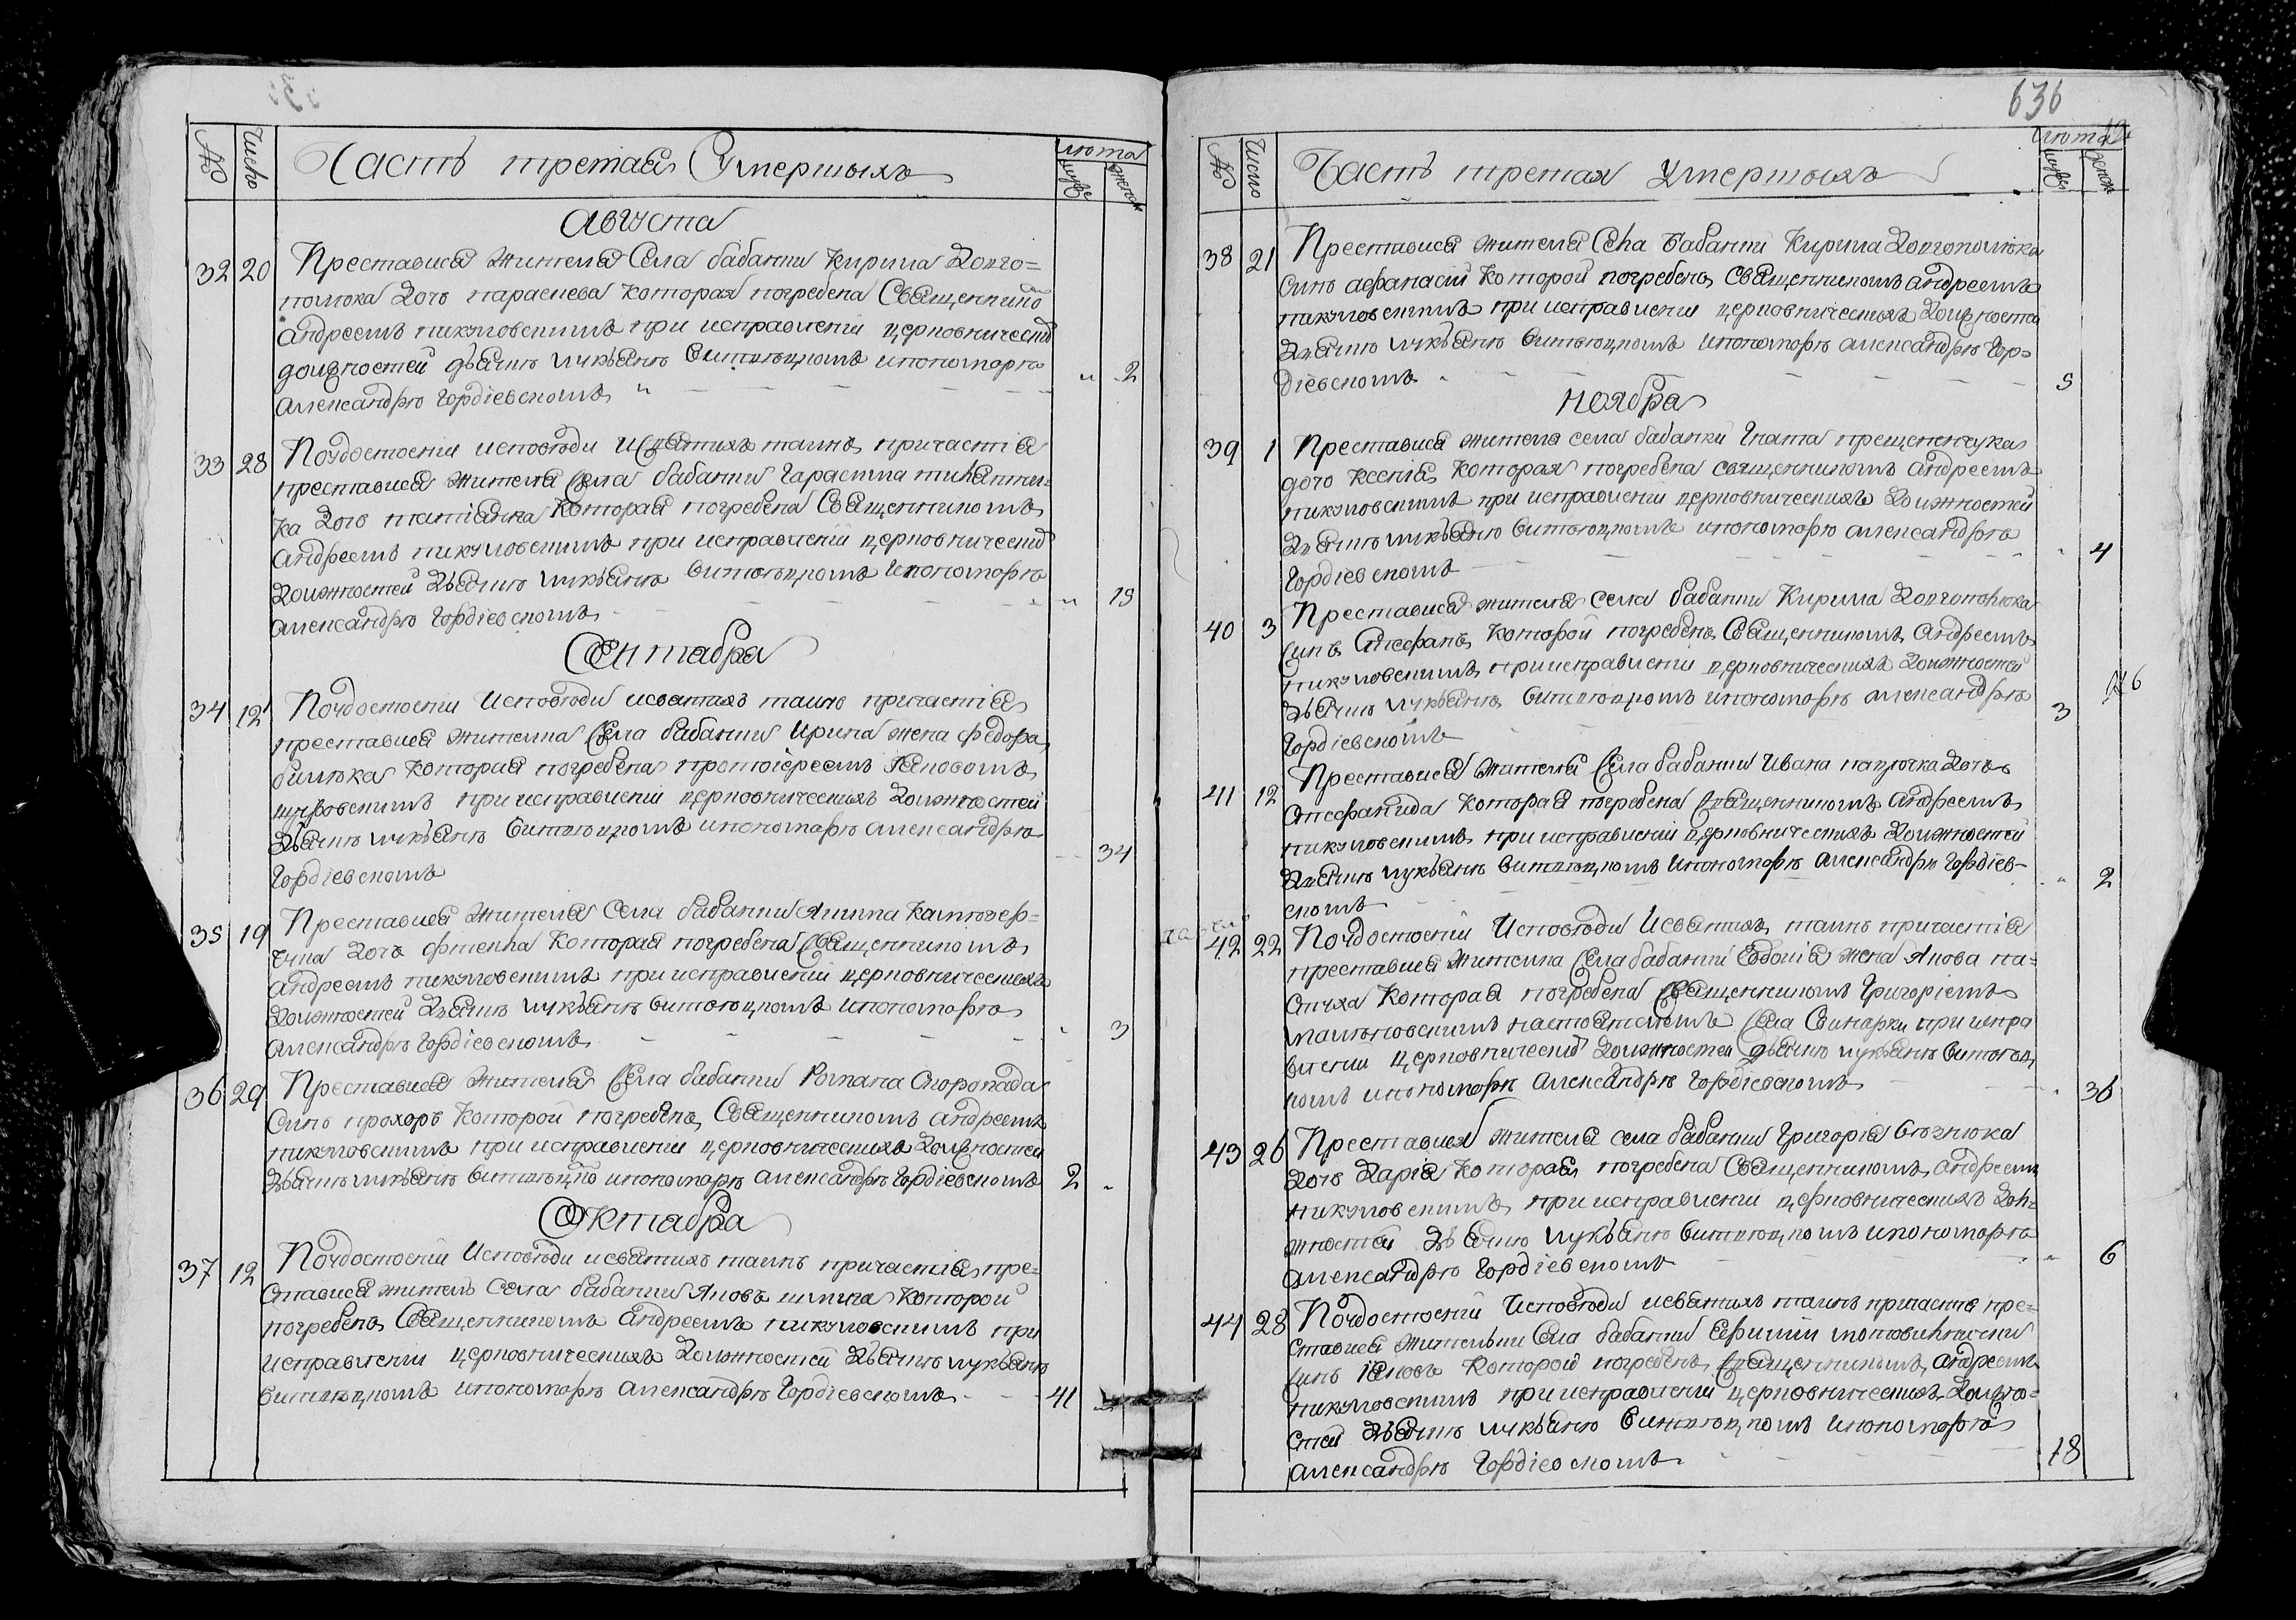 № Число Часть третая Умершыхъ лета
муже женск
Августа
32 20 Преставися жителя Села бабанки Кирила Долго=
полюка дочь параскева которая погребена Священнико
Андреемъ никуловскимъ при исправленіи церковническихъ
должностей дьячку лукьяну Витвицкомъ и пономарю „ 2
Александру Гордіевскомъ
33 28 Поудостоеніи исповѣди и святихъ таинъ причастія
преставися жителя Села бабанки Гарасима
ка дочь татіанна которая погребена Священникомъ
Андреемъ никуловскимъ при исправленіи церковническихъ
должностей дьячку лукьяну Витвицкомъ и пономарю „ 15
Александру Гордіевскомъ
Сентабра
34 12 Поудостоеніи исповѣди и святихъ таинъ причастія
преставися жителка Села бабанки Ирина жена федора
билюка которая погребена протоіереемъ Іаковомъ
при исправленіи церковническихъ должностей
дьячку лукьяну Витвицкомъ и пономарю Александру 34
Гордіевскомъ
35 19 Преставися жителя Села бабанки Якима
дочь которая погребена Священникомъ
Андреемъ никуловскимъ при исправленіи церковническихъ
должностей дьячку лукьяну Витвицкомъ и пономарю „ 3
Александру Гордіевскомъ
36 29 Преставися жителя Села бабанки Романа Скоропада
синъ прохоръ которой погребенъ Священникомъ Андреемъ
никуловскимъ при исправленіи церковническихъ должностей
дьячку лукьяну Витвицко и пономарю Александру Гордіевскомъ 2 „
Октабра
37 12 Поудостоеніи Исповѣди и святихъ таинъ причастія пре=
ставися житель Села бабанки Яковъ которой
погребенъ Священникомъ Андреемъ никуловскимъ при
исправленіи церковническихъ должностей дьячку лукьяну
Витвицкомъ и пономарю Александру Гордіевскомъ 41 „
636
№ Число Часть третая Умершыхъ лета
мужес женск
38 21 Преставися жителя Села Бабанки Кирила Долгополюка
синъ афанасій которой погребенъ Священникомъ андреемъ
никуловскимъ при исправленіи церковническихъ должностей
дьячку лукьяну Витвицкомъ и пономарю александру Гор=
діевскомъ 5
Ноября
39 1 Преставися жителя села бабанки Игната
дочь Ксенія которая погребена священникомъ андреемъ
никуловскимъ при исправленіи церковническихъ должностей
дьячку лукьяну Витвицкомъ и пономарю александру „ 4
Гордіевскомъ
40 3 Преставися жителя Села бабанки Кирила Долгополюка
синъ Стефанъ которой погребенъ Священникомъ Андреемъ
никуловскимъ при исправленіи церковническихъ должностей
дьячку лукьяну Витвицкомъ и пономарю александру 3
Гордіевскомъ
41 12 Преставися жителя Села бабанки Ивана дочь
Стефанида которая погребена Священникомъ андреемъ
никуловскимъ при исправленіи церковническихъ должностей
дьячку лукьяну Витвицкомъ и пономарю Александру Гордіев- „ 2
скомъ
42 22 Поудостоеніи Исповѣди И святихъ таинъ причастія
преставися жителка Села бабанки Евдокія жена Якова
которая погребена Священникомъ Григоріемъ
настоятелемъ Села Свинарки при испра
вленіи церковнической должностей дьячку лукьяну Витвиц
комъ и пономарю Александру Гордіевскомъ „ 36
43 26 Преставися жителя села бабанки Григорія
дочь Дарія которая погребена Священникомъ андреемъ
никуловскимъ при исправленіи церковническихъ дол=
жностей дьячку лукьяну Витвицкомъ и пономарю „ 6
александру Гордіевскомъ
44 28 Поудостоеніи Исповѣди и святихъ таинъ причастія пре=
ставися жителки Села бабанки Ефиміи
синъ Іаковъ которой погребенъ Священникомъ андреемъ
никуловскимъ при исправленіи церковническихъ должно=
стей дьячку лукьяну Витвицкомъ и пономарю
александру Гордіевскомъ 18